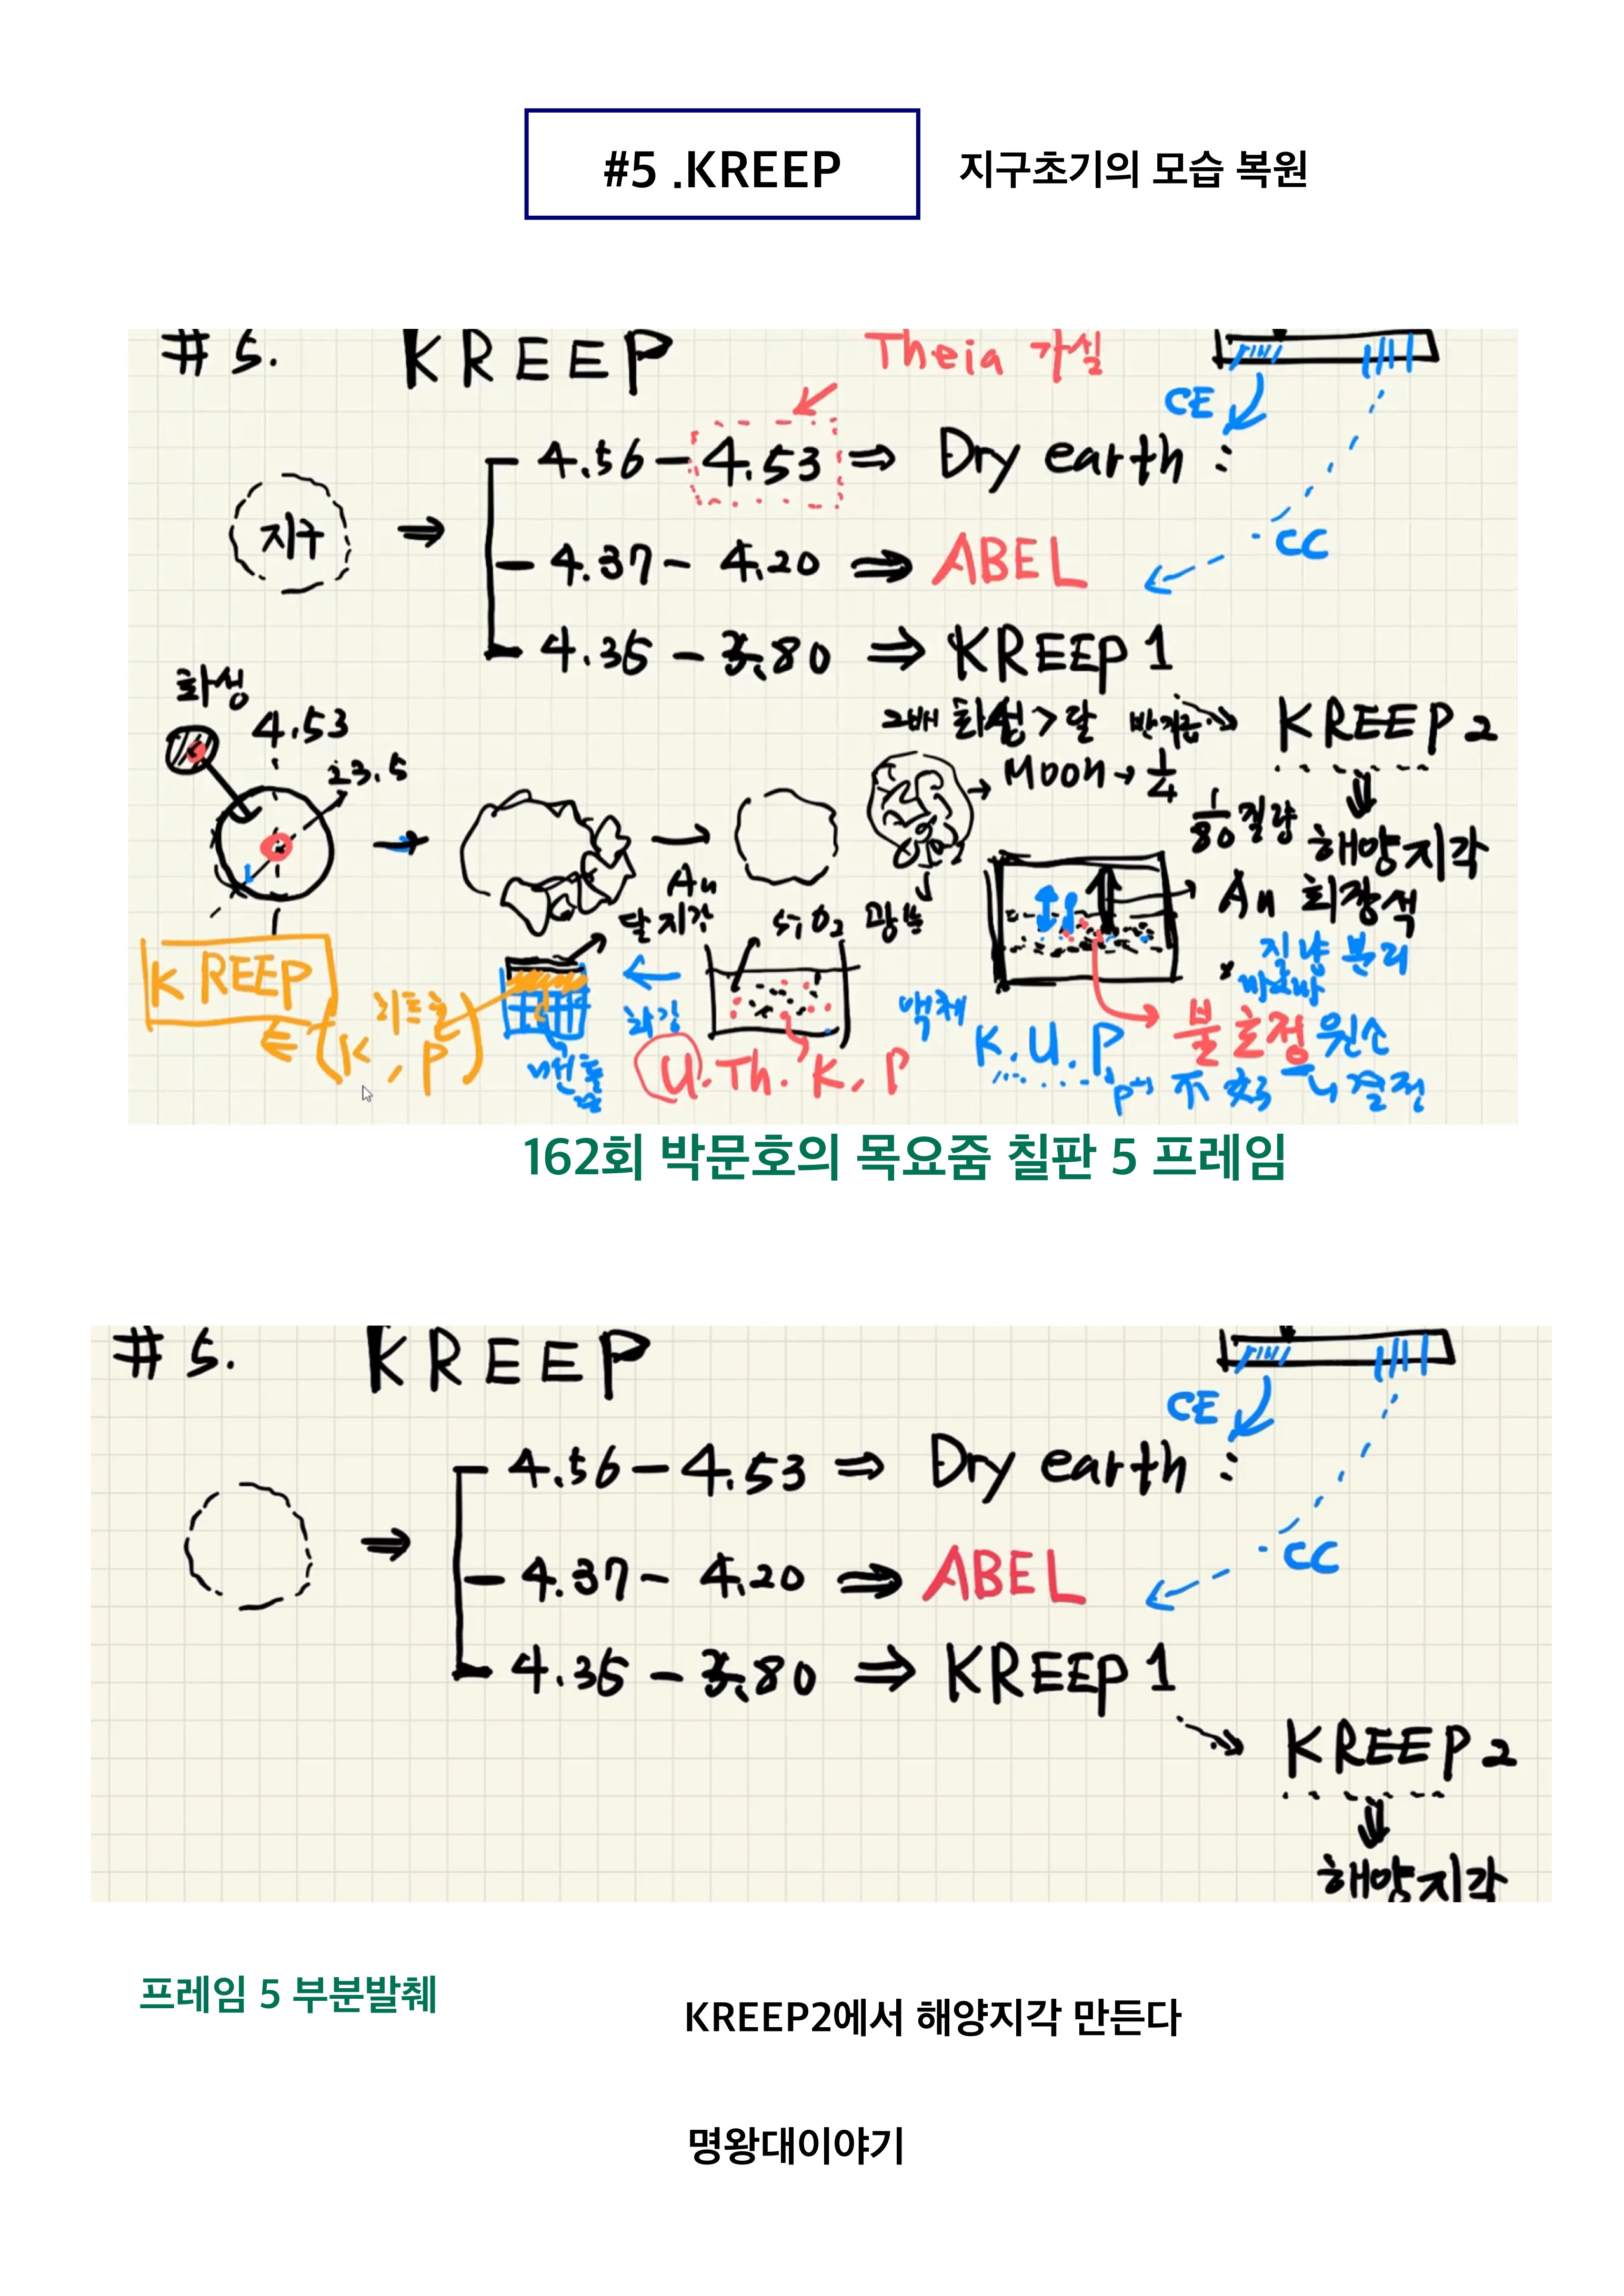 #5 .KREEP
지구초기의 모습 복원
#5. KREEP
Theia 가설
CE
4.56-4.53 ⇒ Dry earth :
지구 ⇒
CC
4.37-4.20 ⇒ ABEL
4.35-3.80 ⇒ KREEP1
화성
4.53
23.5
2배 화성>달
KREEP2
Moon→1/4
1/80 질량
해양지각
An
An 회장석
달지각
SiO2
KREEP
⇐ (K, P)
맨틀
U.Th.K.P
액체
K.U.P
불호정 원소
분리
마그마
결정
162회 박문호의 목요줌 칠판 5 프레임
#5. KREEP
CE
4.56-4.53 ⇒ Dry earth :
⇒
CC
4.37-4.20 ⇒ ABEL
4.35-3.80 ⇒ KREEP1
KREEP2
⇓
해양지각
프레임 5 부분발췌
KREEP2에서 해양지각 만든다
명왕대이야기